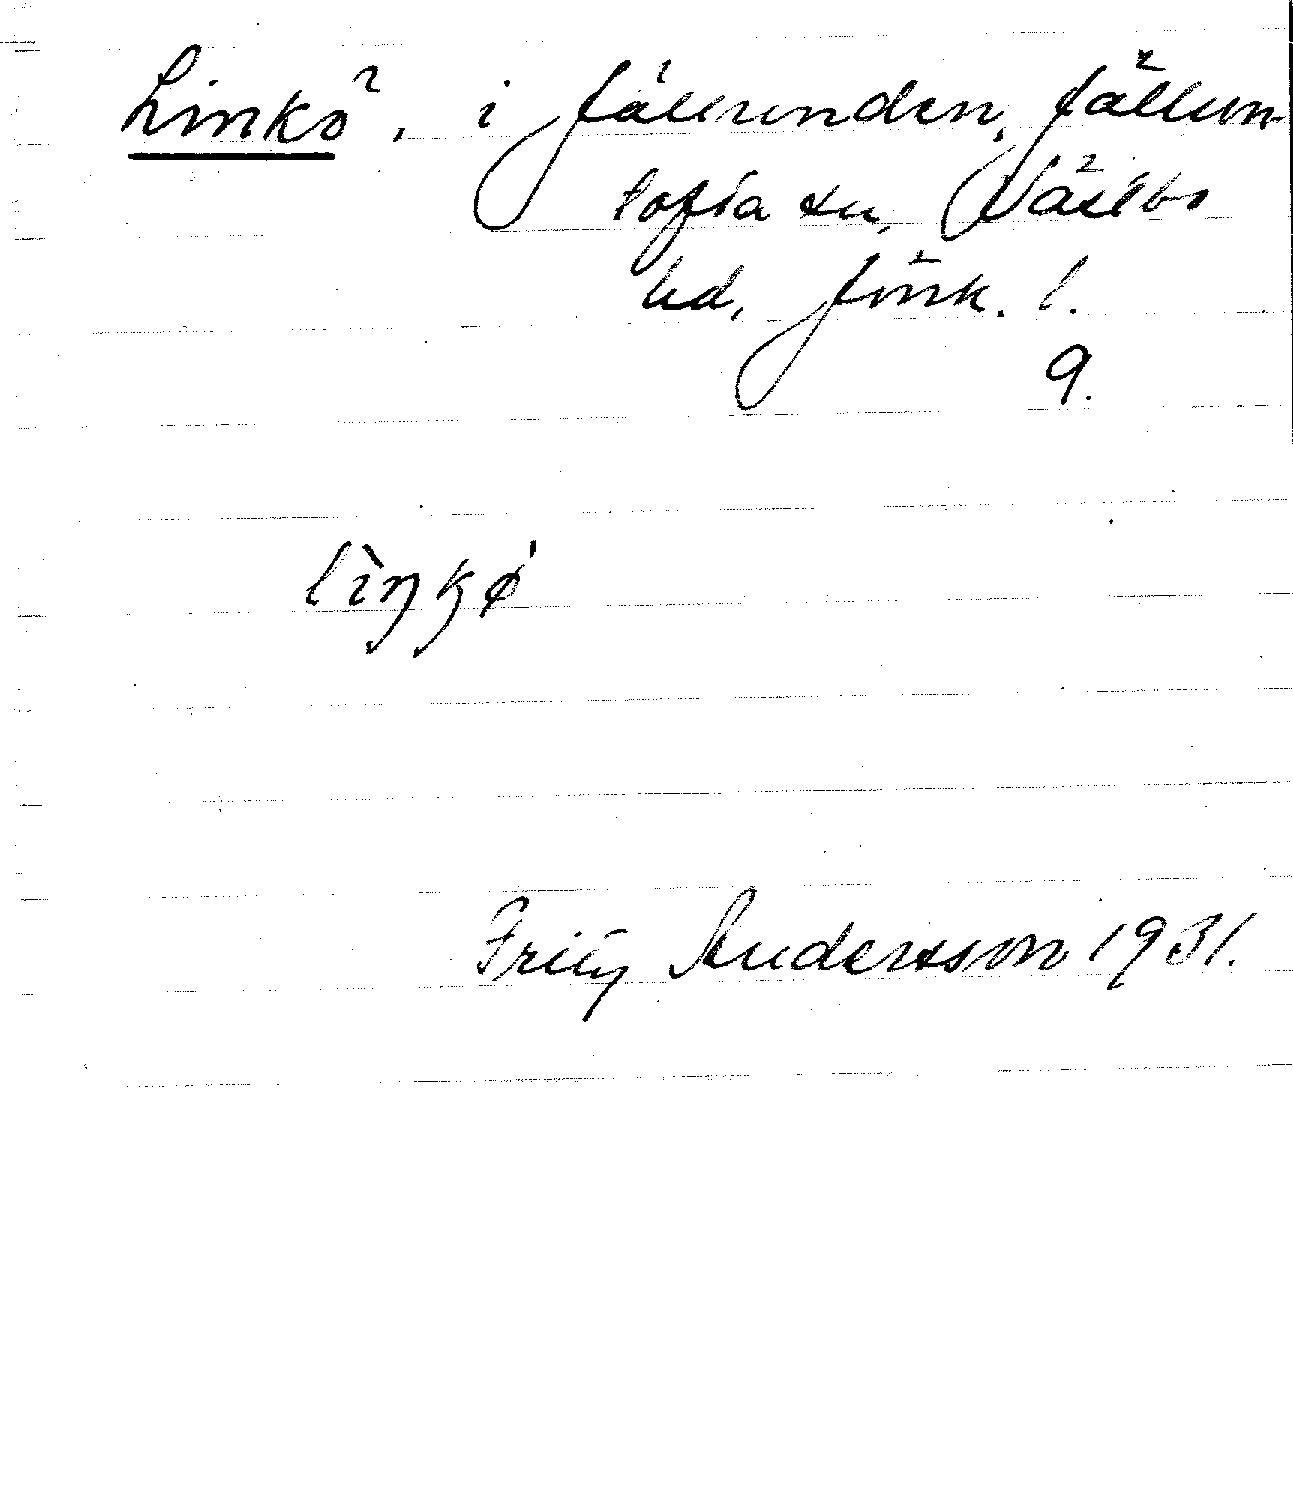 Linkö, i Jällunden, Jällun-
tofta sn, Västbo
hd, Jönk. l.
9.
lìŋkø´
Fritz Andersson 1931.